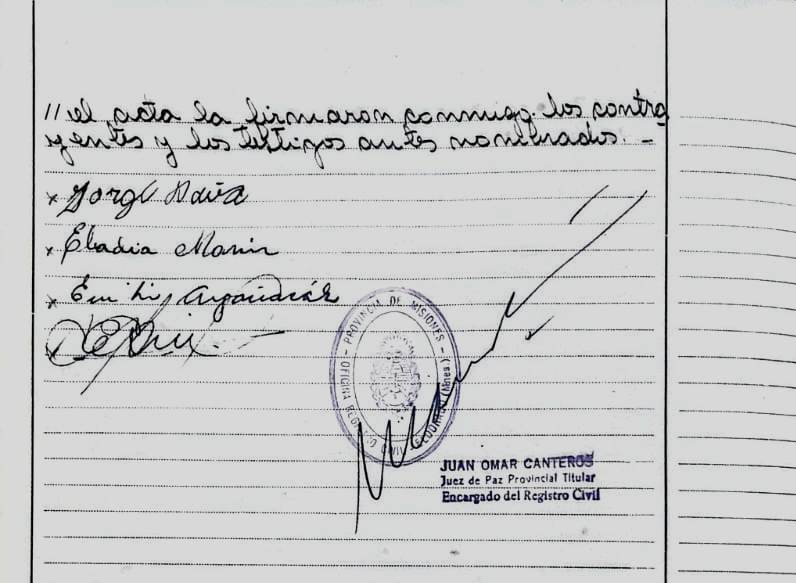 // el acta la firmaron conmigo los contra
yentes y los testigos antes nombrados. -
x Jorge
x Eladia
x
PROVINCIA DE MISIONES
OFICINA REGISTRO CIVIL - ELDORADO (Mnes.)
JUAN OMAR CANTEROS
Juez de Paz Provincial Titular
Encargado del Registro Civil